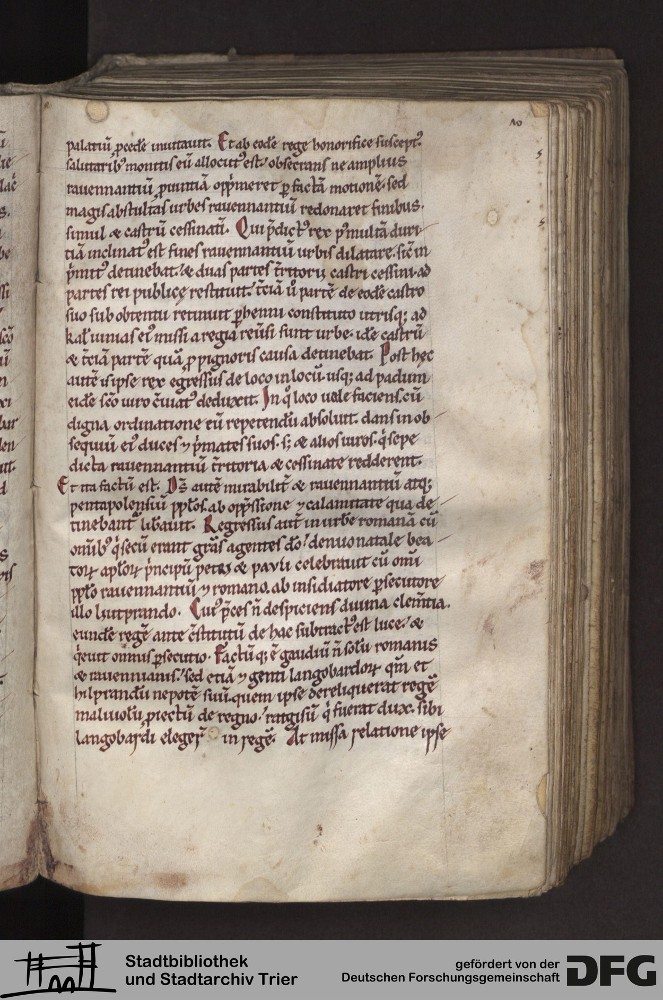 10
palatiū ꝓcede inuitauit. Et ab eodē rege honorifice suscept᷒
salutarib᷒ monitis eū allocut᷒ est. obsecrans ne amplius
rauennantiū ꝓuintiā opp̄meret ꝑ factā motionē. sed
magis abstultas urbes rauennantiū redonaret finibus.
simul & castrū cessinatē. Qui p̄dict᷒ rex p᷒ multā duri
tiā inclinat᷒ est fines rauennantiū urbis dilatare. sic̄ in
p̄mit᷒ detinebat. & duas partes t̄ritorii castri cessini. ad
partes rei publicę restituit. t̄ciā ū partē de eodē castro
suo sub obtentu retinuit ꝑhenni constituto utrisq; ad
kal iunias ei᷒ missi a regia reūsi sunt urbe. idē castrū
& t̄ciā partē quā ꝓ pignoris causa detinebat. Post hęc
autē is ipse rex egressus de loco in locū usq; ad padum
eidē sc̄o uiro c̄uiat᷒ deduxit. In q̊ loco uale faciens. cū
digna ordinatione eū repetendū absoluit. dans in ob
sequiū ei᷒ duces ⁊ p̄mates suos. s; & alios uiros. q̄ sepe
dicta rauennantiū t̄ritoria & cessinate redderent.
Et ita factū est. D̄s autē mirabilit̄ & rauennantiū atq;
pentapolensiū ppl̄os. ab opp̄ssione ⁊ calamitate qua de
tinebant᷒ lib̄auit. Regressus aut̄ in urbē romanā cū
om̄ib᷒ q̄ secū erant gr̄as agentes dō. denuo natale bea
toꝝ apl̄oꝝ p̄ncipū petri & pauli celebrauit cū om̄i
ppl̄o rauennantiū ⁊ romano. ab insidiatore ꝑsecutore
illo luitprando. Cui᷒ p̄ces n̄ despiciens diuina clem̄tia.
eundē regē ante c̄stitutū de hac subtract᷒ est luce. &
q̄euit omnis ꝑsecutio. Factū q; ē gaudiū n̄ solū romanis
& rauennianis. sed etiā ⁊ genti langobardoꝝ qm̄ et
hilprandū nepotē suū. quem ipse dereliquerat regē
maliuolū ꝓiectū de regno. ratgisū q̄ fuerat dux. sibi
langobardi eleger̄ in regē. At missa relatione ipse
Stadtbibliothek
und Stadtarchiv Trier
gefördert von der
Deutschen Forschungsgemeinschaft
DFG